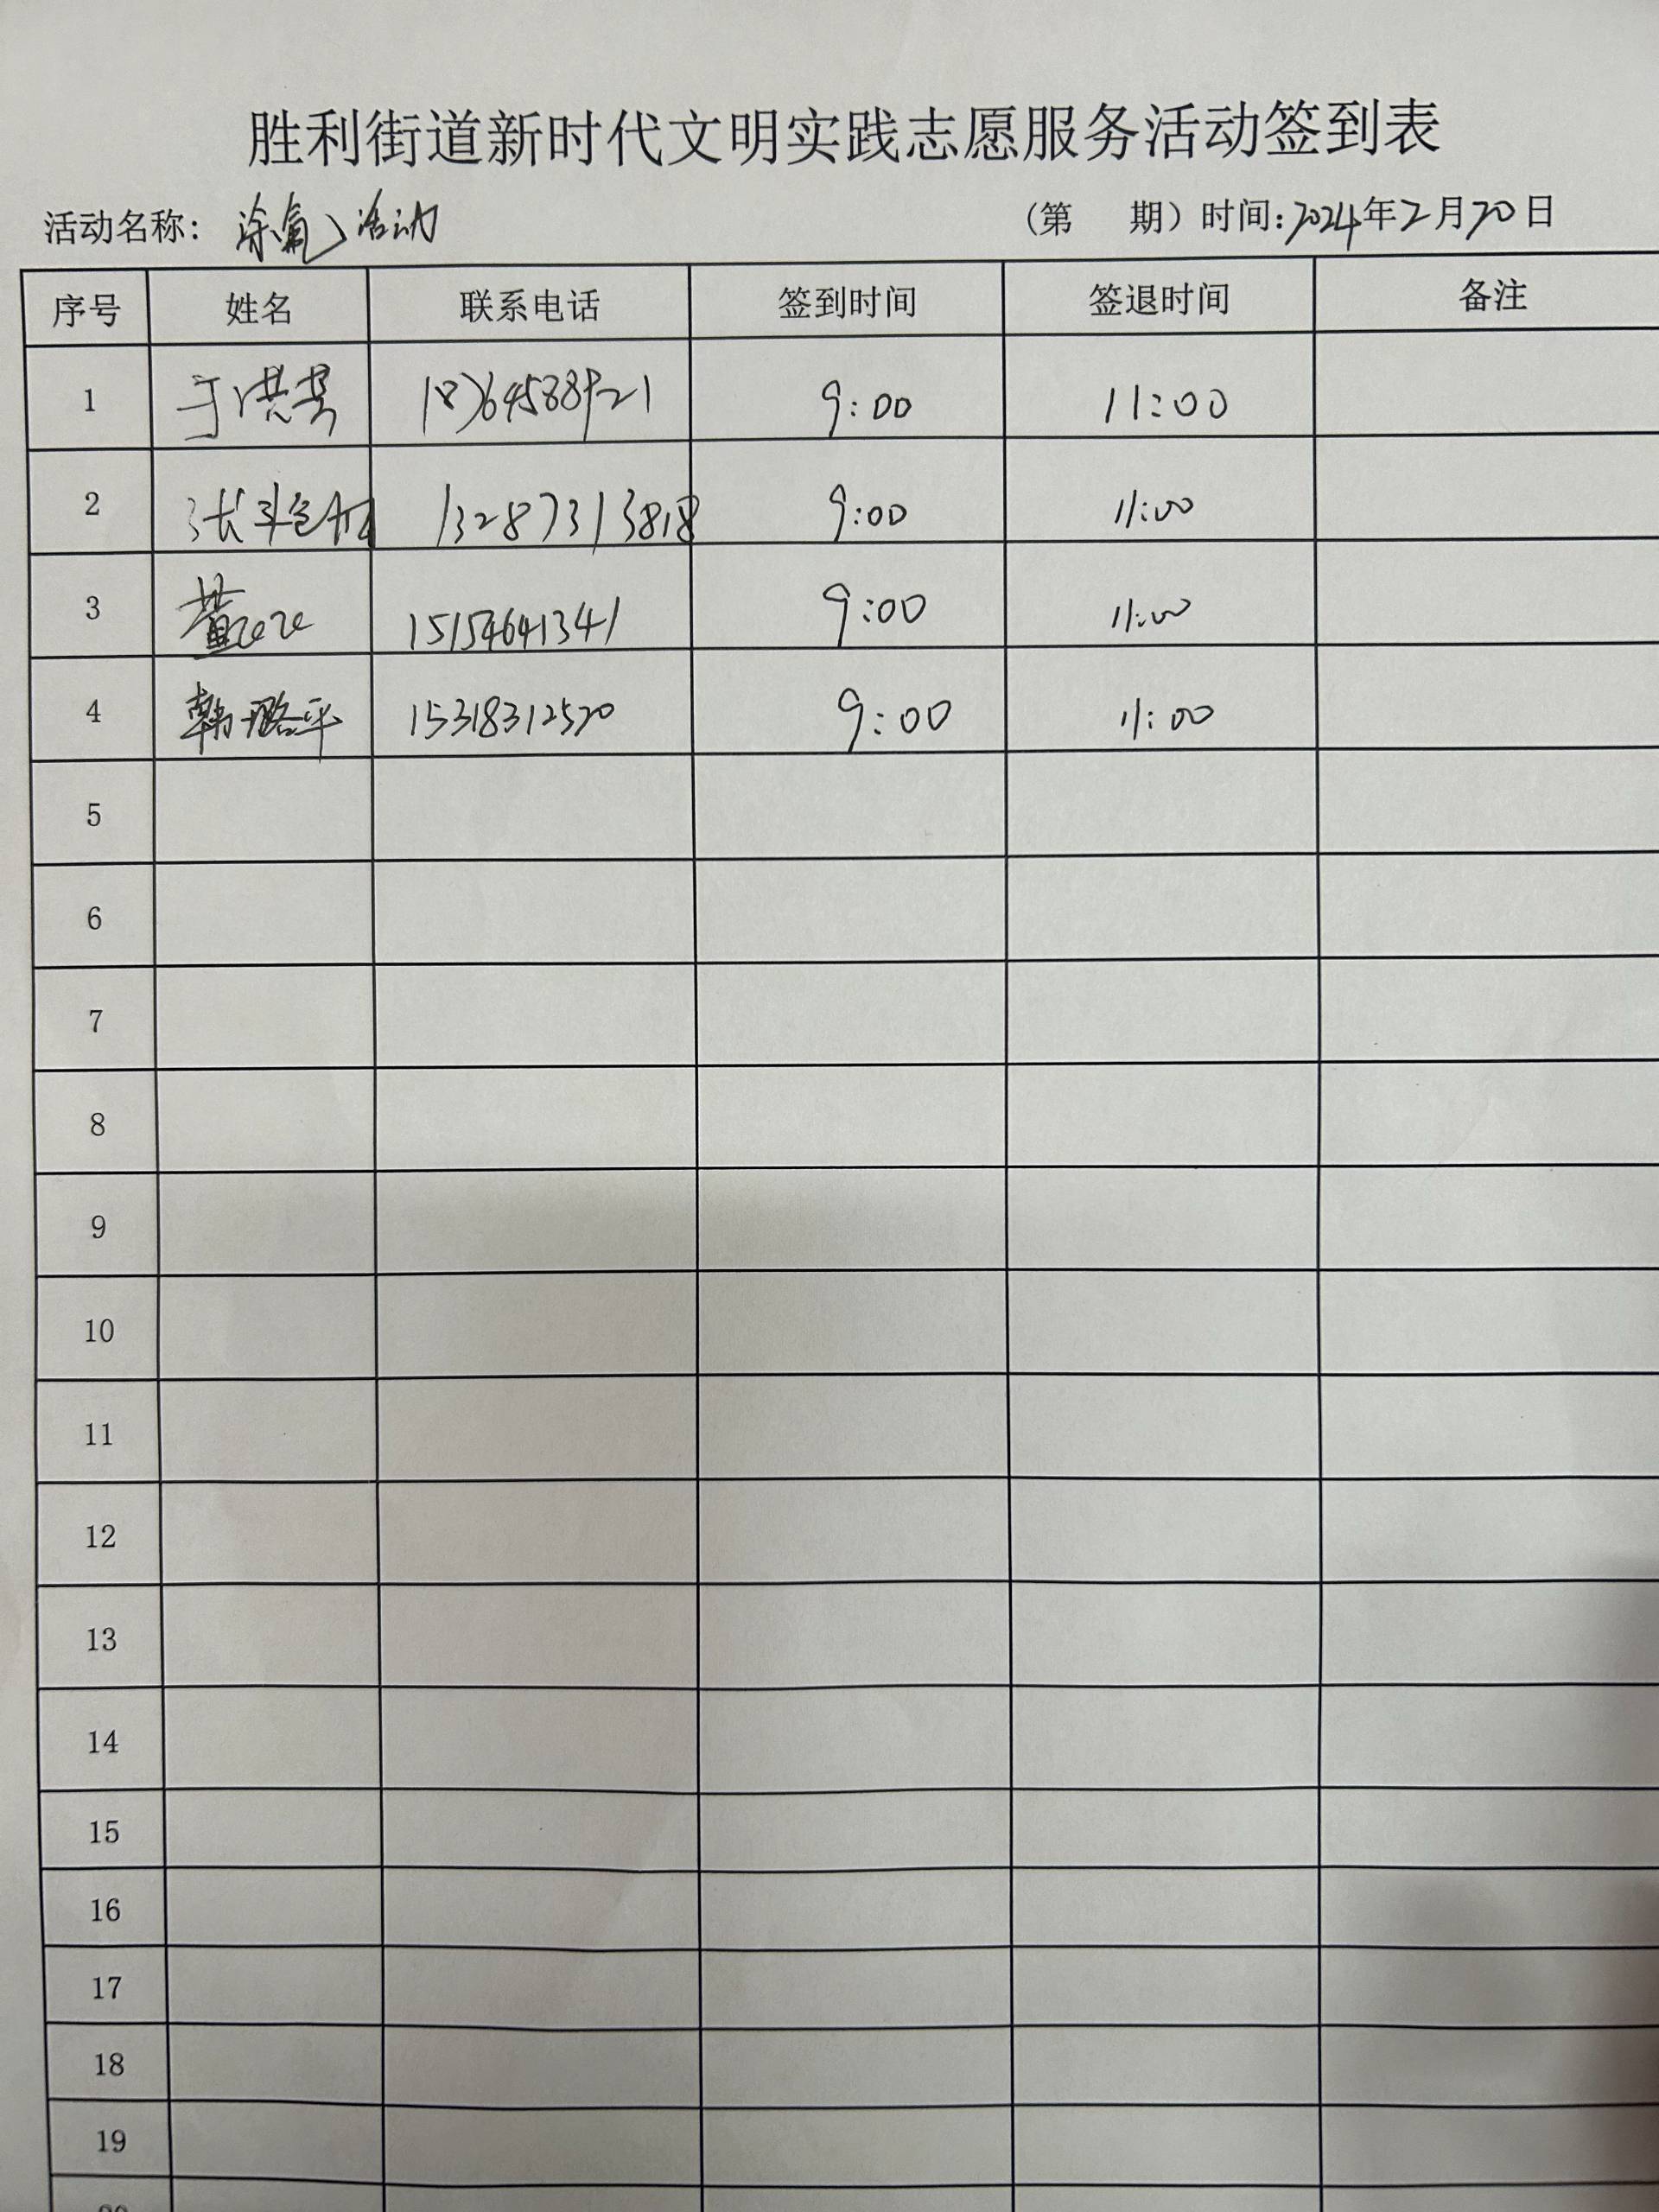 胜利街道新时代文明实践志愿服务活动签到表
活动名称：涂氟 活动 （第 期）时间：2024年2月20日
序号 姓名 联系电话 签到时间 签退时间 备注
1 于洪 9:00 11:00
2 张 13287313818 9:00 11:00
3 黄 15154641341 9:00 11:00
4 韩璐平 15318312520 9:00 11:00
5
6
7
8
9
10
11
12
13
14
15
16
17
18
19
20